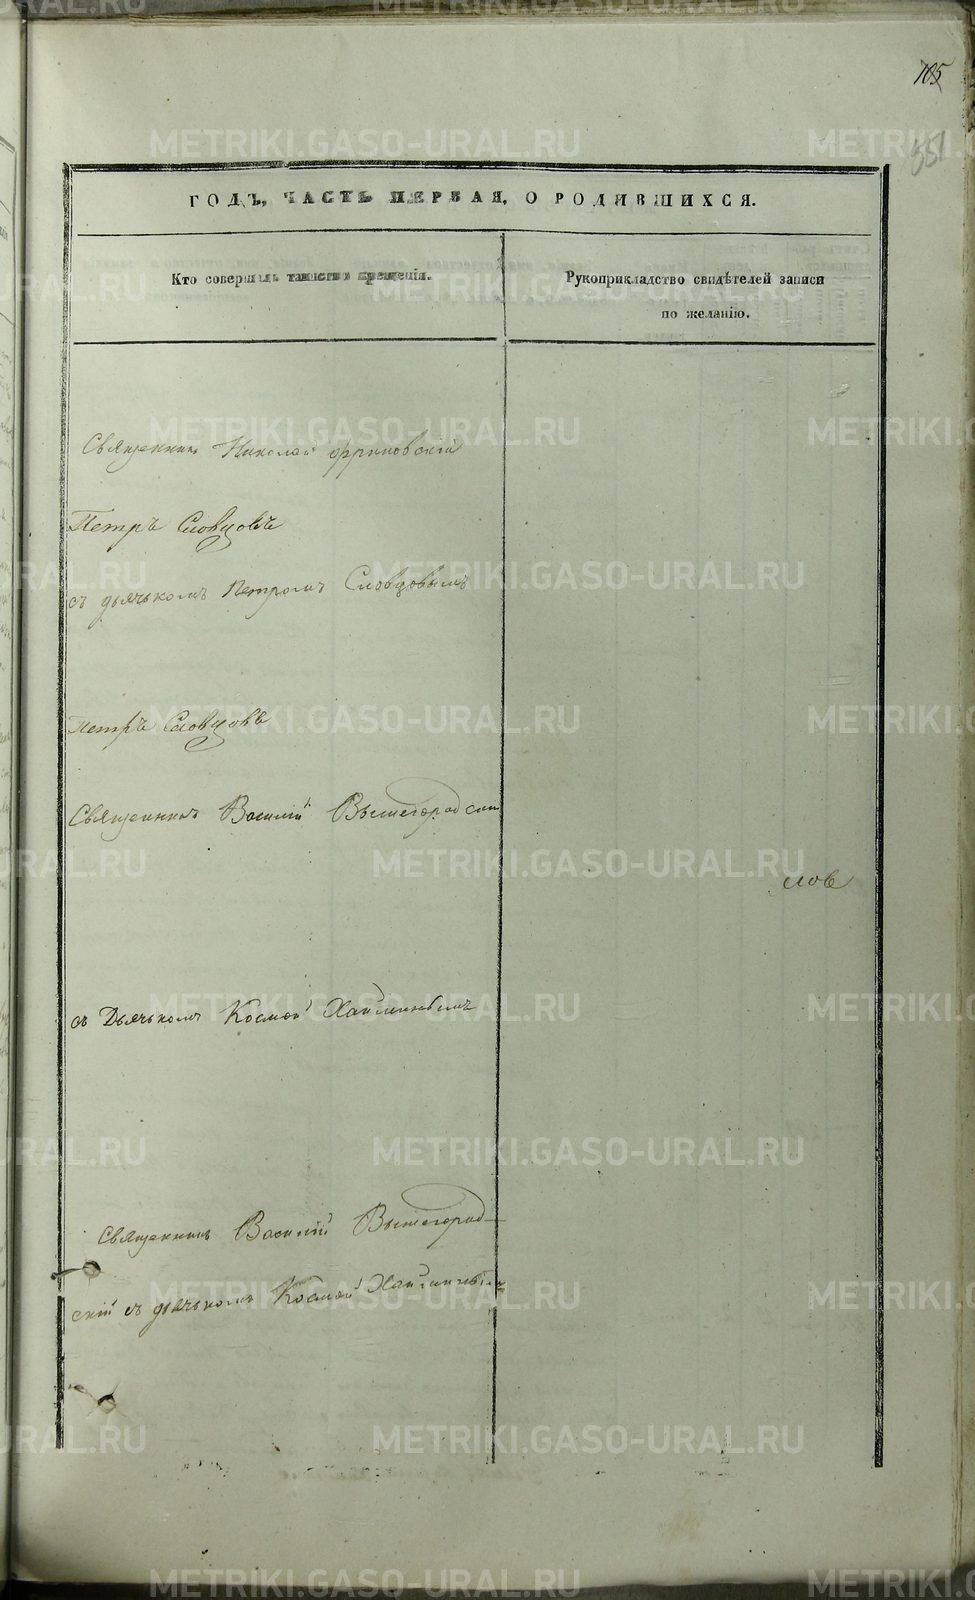 105
551
ГОДЪ, ЧАСТЬ ПЕРВАЯ, О РОДИВШИХСЯ.
Кто совершалъ таинство крещенія.
Рукоприкладство свидѣтелей записи
по желанію.
Священникъ Николай Фрриновскій
Петръ Словцовъ
съ дьячькомъ Петромъ Словцовымъ
Петръ Словцовъ
Священникъ Василій Вышегородскій
лов
съ Дьячькомъ Космой
Священникъ Василій Вышегород-
скій съ дьячькомъ Космой
METRIKI.GASO-URAL.RU